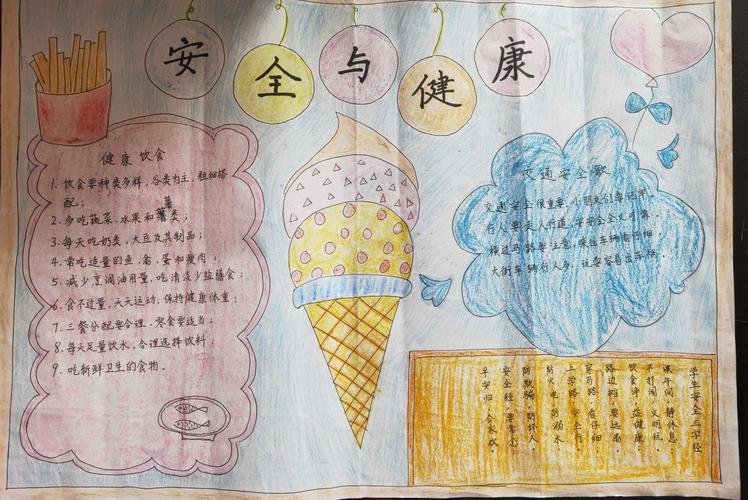 安全与健康
健康饮食
1. 饮食要种类多样，谷类为主，粗细搭
配；
2. 多吃蔬菜、水果和薯类；
3. 每天吃奶类、大豆及其制品；
4. 常吃适量的鱼、禽、蛋和瘦肉；
5. 减少烹调油用量，吃清淡少盐膳食；
6. 食不过量，天天运动，保持健康体重；
7. 三餐分配要合理，零食要适当；
8. 每天足量饮水，合理选择饮料；
9. 吃新鲜卫生的食物。
交通安全歌
交通安全很重要，小朋友们要记牢
行人要走人行道，安安全全又可靠
横过马路要注意，来往车辆看仔细
大街车辆行人多，玩耍容易出车祸。
学生安全三字经
课午间，静休息，
不打闹，文明玩，
饮食净，益健康，
路边摊，要远离，
穿马路，看仔细，
上学路，安全行，
防火电，防溺水，
防欺骗，防坏人，
安全经，要常念，
早安归，合家欢，